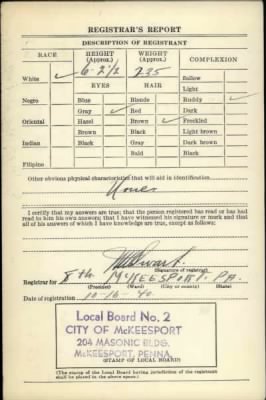 REGISTRAR'S REPORT
DESCRIPTION OF REGISTRANT
RACE HEIGHT (Approx.) WEIGHT (Approx.) COMPLEXION
White ✓ 6-2½ 235 Sallow
Light
EYES HAIR
Negro Blue Blonde Ruddy ✓
Gray ✓ Red Dark
Oriental Hazel Brown ✓ Freckled
Brown Black Light brown
Indian Black Gray Dark brown
Bald Black
Filipino
Other obvious physical characteristics that will aid in identification
None
I certify that my answers are true; that the person registered has read or has had
read to him his own answers; that I have witnessed his signature or mark and that
all of his answers of which I have knowledge are true, except as follows:
(Signature of registrar)
Registrar for 8th McKEESPORT. PA.
(Precinct) (Ward) (City or county) (State)
Date of registration 10-16-40
Local Board No. 2
CITY OF McKEESPORT
204 MASONIC BLDG.
McKEESPORT, PENNA.
(STAMP OF LOCAL BOARD)
(The stamp of the Local Board having jurisdiction of the registrant
shall be placed in the above space.)